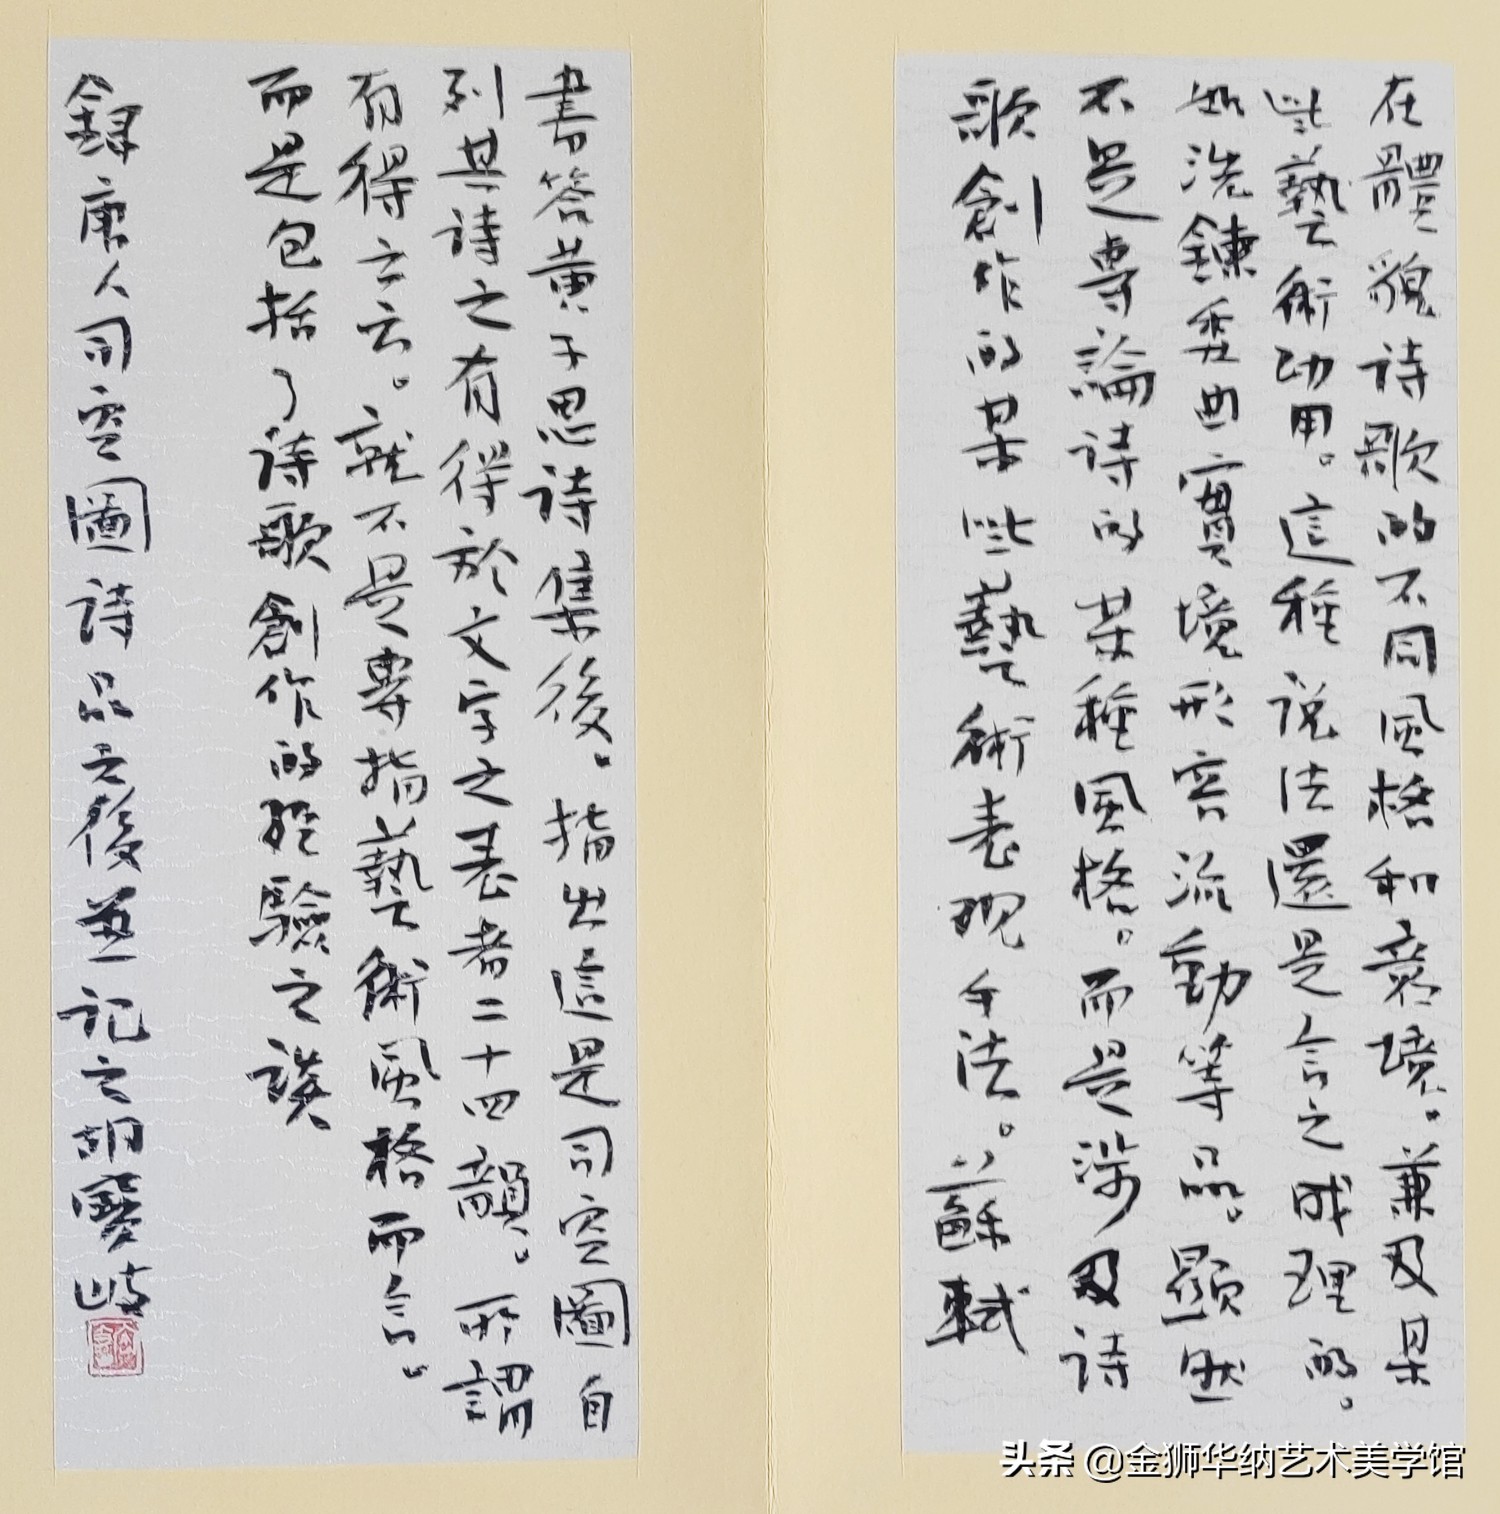 在體貌詩歌的不同風格和意境。兼及某
些藝術功用。這種说法還是言之成理的。
如洗鍊委曲實境形容流動等品。顯然
不是專論詩的某種風格。而是涉及詩
歌創作的某些藝術表现手法。蘇軾
書答黄子思詩集後。指出這是司空圖自
列其詩之有得於文字之表者二十四韻。所謂
有得云云。就不是專指藝術風格而言。
而是包括了詩歌創作的經驗之談
錄唐人司空圖詩品之後並記之胡寶岐
头条 @金狮华纳艺术美学馆